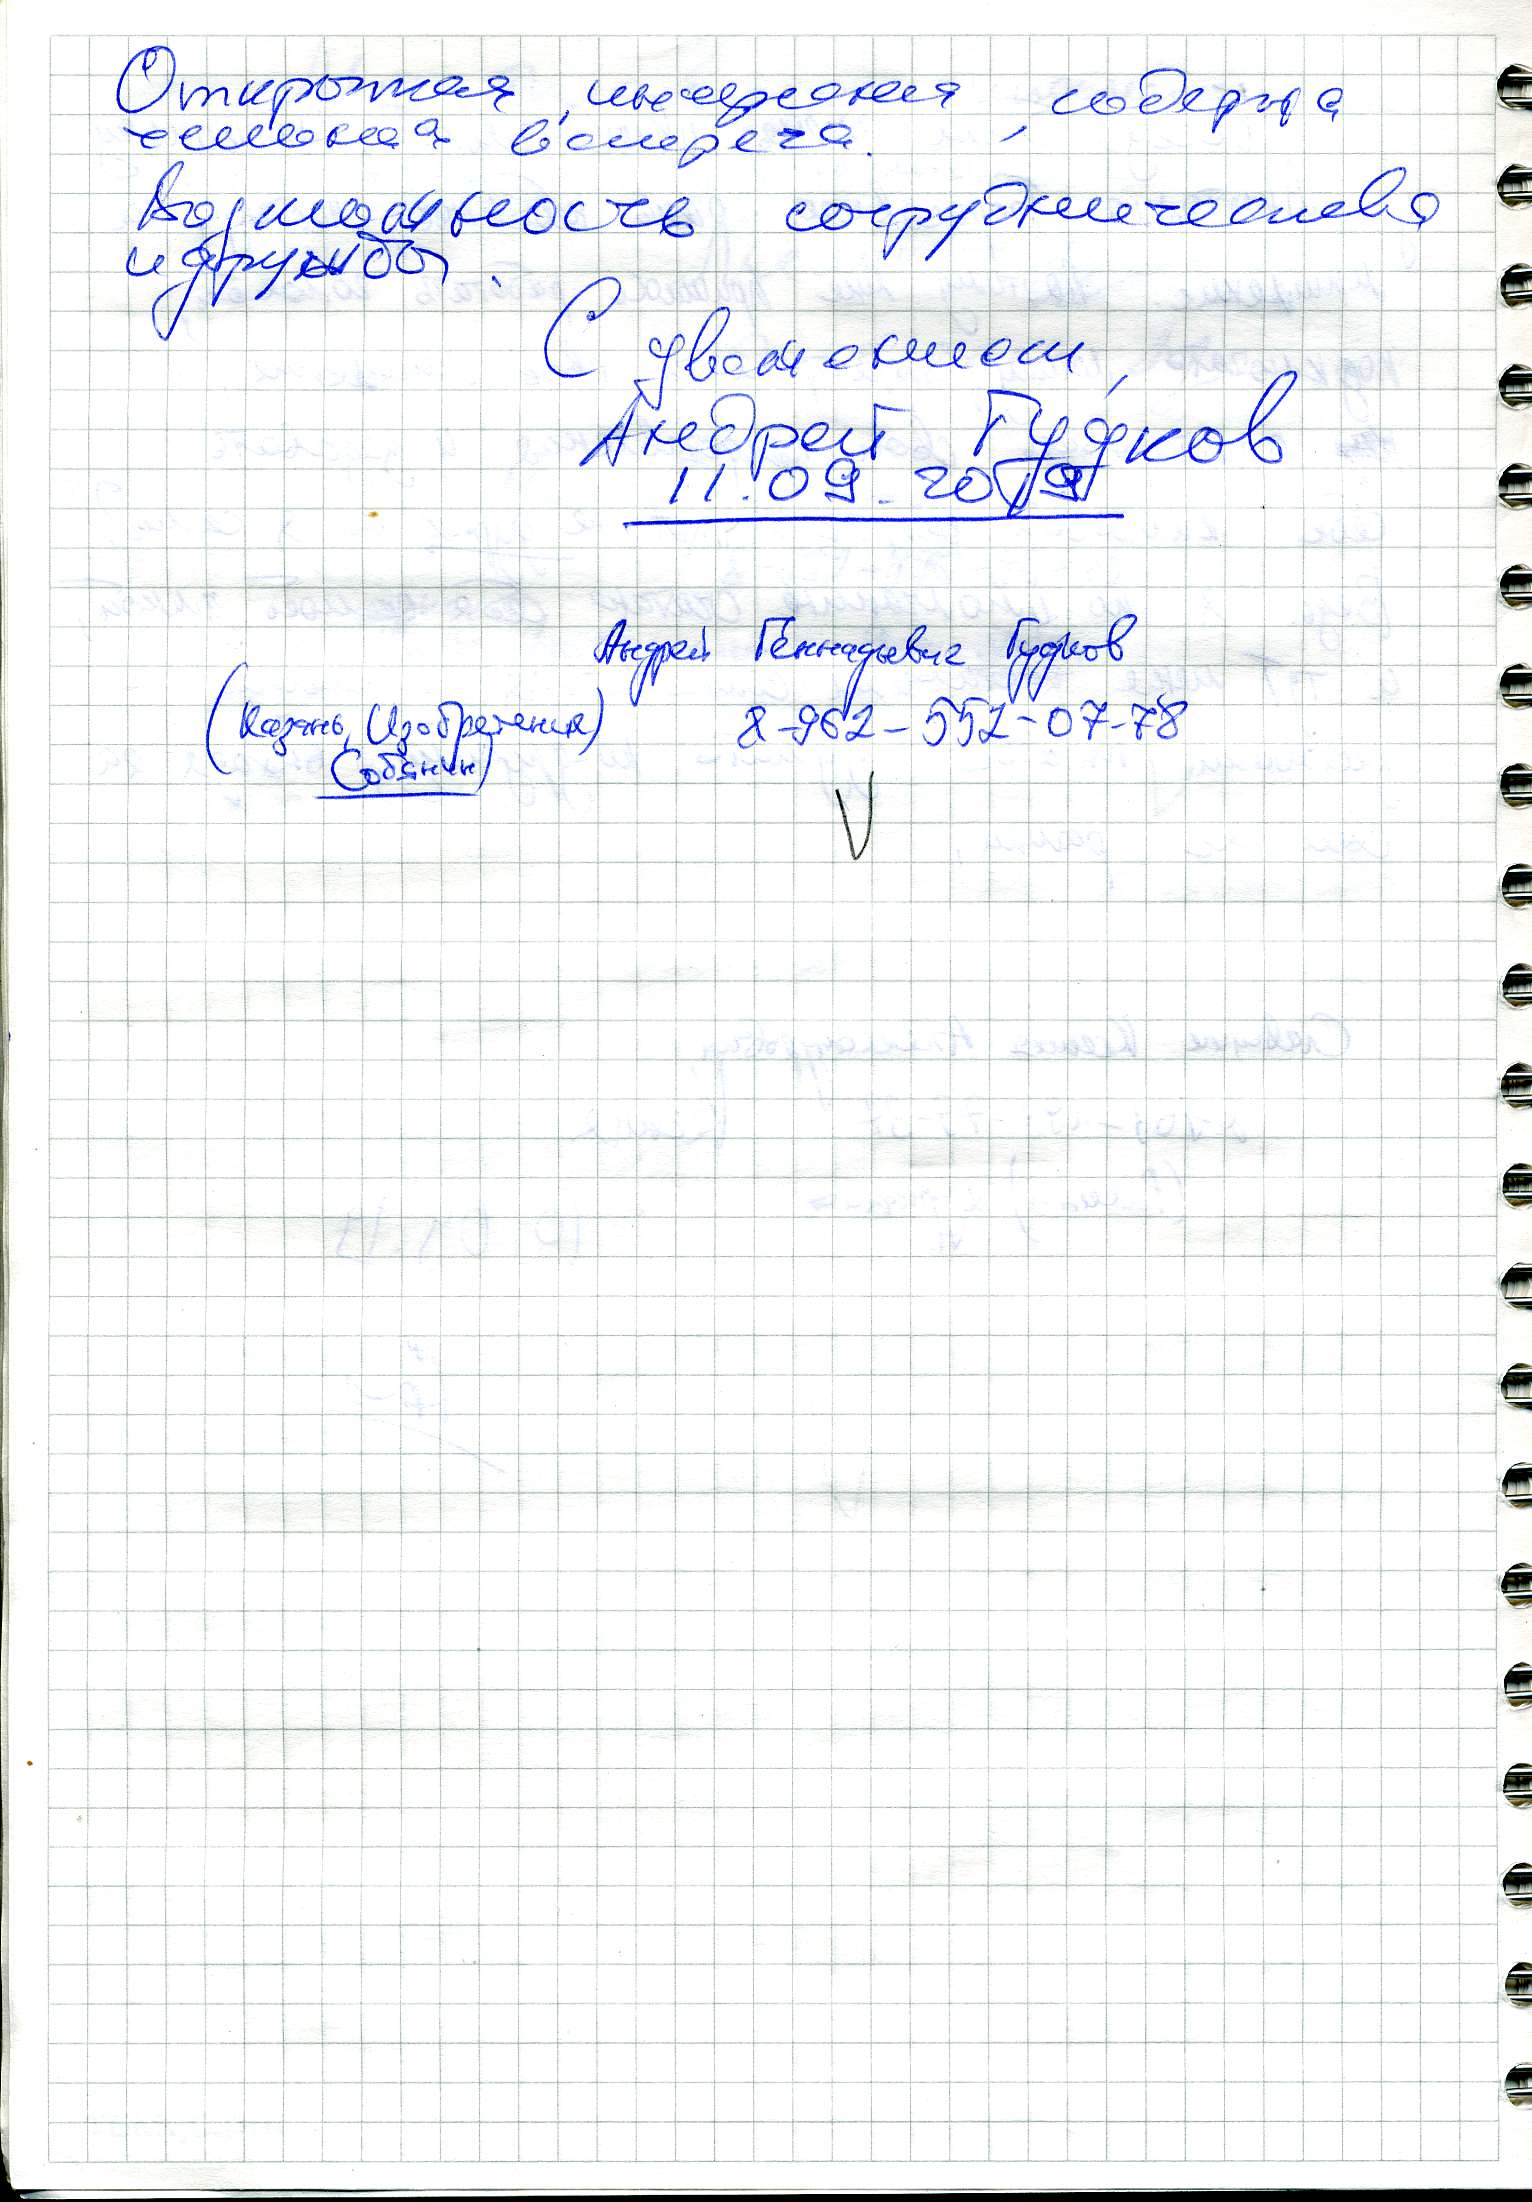 Открытая, искренняя, содержа
тельная встреча.
Возможность сотрудничества
и дружбы.
С уважением,
Андрей Гудков
11.09.2019
Андрей Геннадьевич Гудков
(Казань, Изобретения) 8-962-552-07-78
Собянин)
V